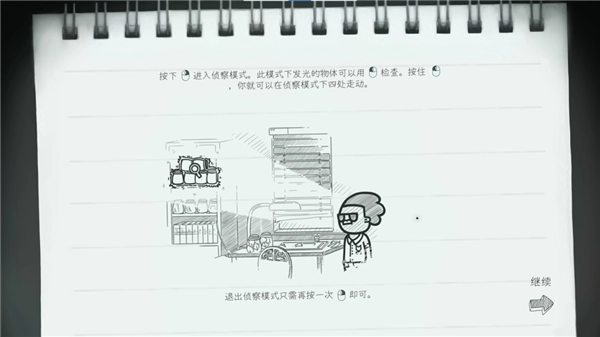 按下 进入侦察模式。此模式下发光的物体可以用 检查。按住
，你就可以在侦察模式下四处走动。
退出侦察模式只需再按一次 即可。
继续